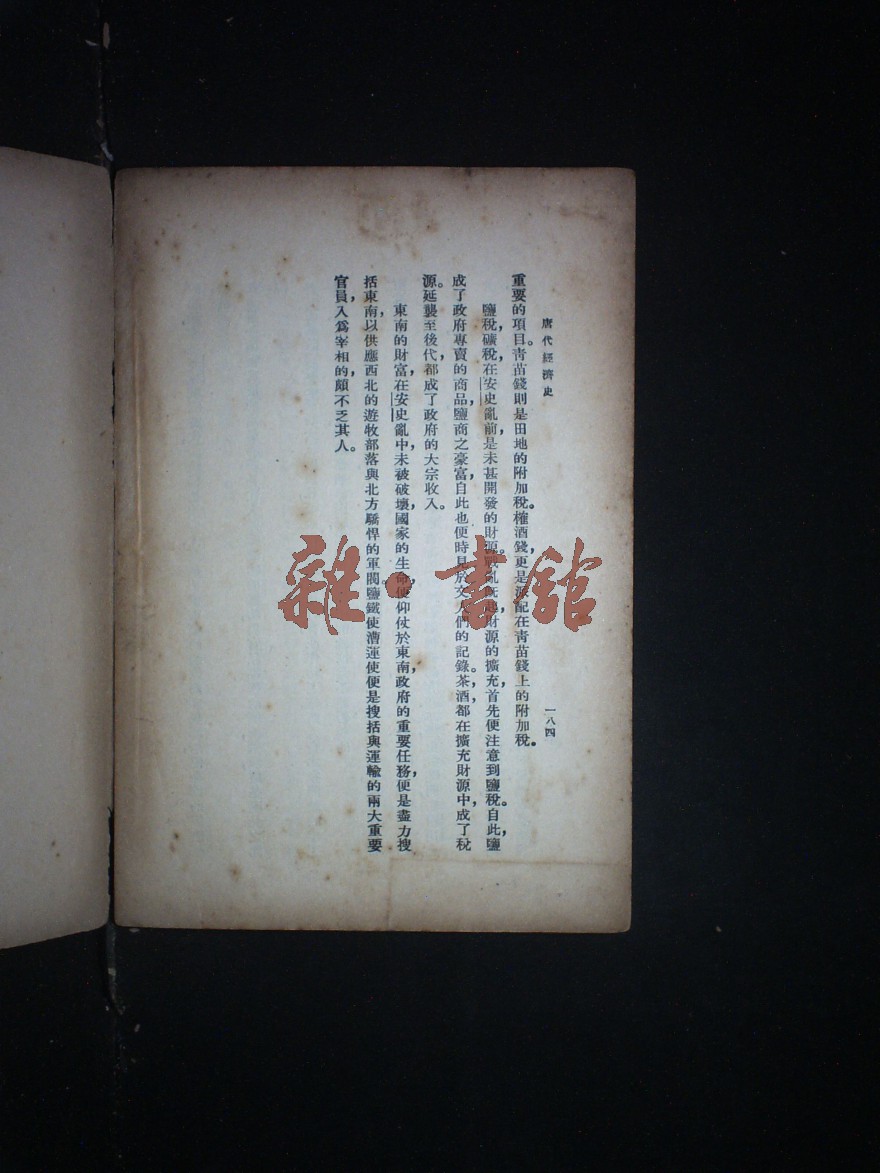 唐代經濟史
一八四
重要的項目。靑苗錢則是田地的附加稅。榷酒錢，更是派配在靑苗錢上的附加稅。
鹽稅，礦稅，在安史亂前，是未甚開發的財源。戰亂旣起，財源的擴充，首先便注意到鹽稅。自此，鹽
成了政府專賣的商品，鹽商之豪富，自此也便時見於文人們的記錄。茶，酒，都在擴充財源中，成了稅
源。延襲至後代，都成了政府的大宗收入。
東南的財富，在安史亂中，未被破壞，國家的生命，便仰仗於東南，政府的重要任務，便是盡力搜
括東南，以供應西北的遊牧部落與北方驕悍的軍閥。鹽鐵使漕運使便是搜括與運輸的兩大重要
官員，入爲宰相的，頗不乏其人。
雜·書館